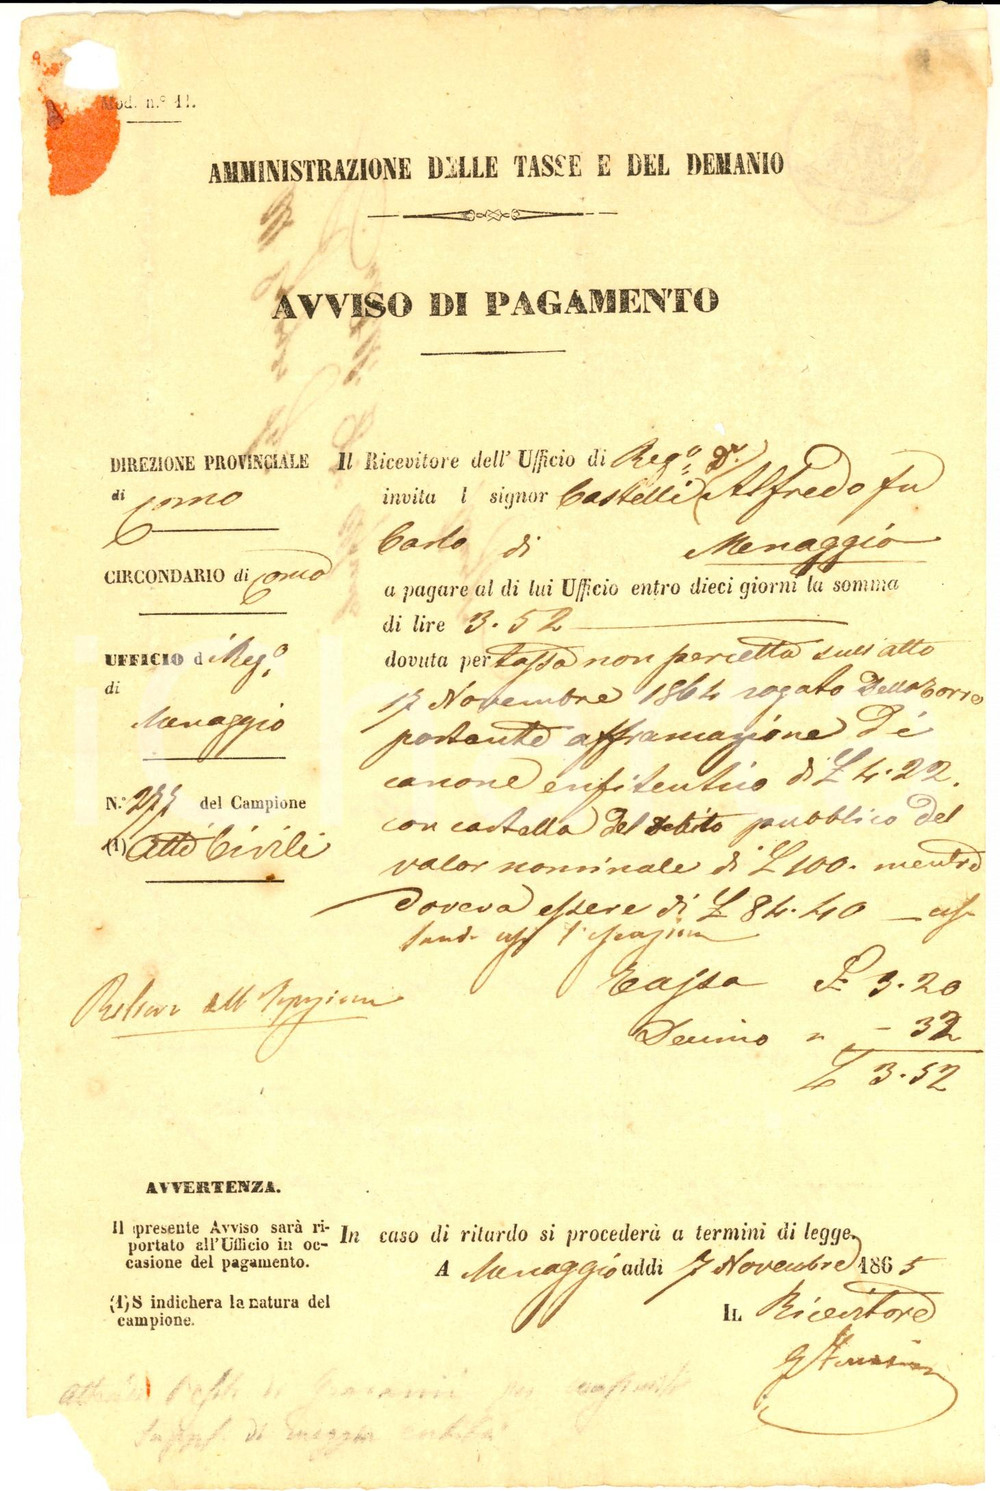 Mod. n.° 11.
AMMINISTRAZIONE DELLE TASSE E DEL DEMANIO
AVVISO DI PAGAMENTO
DIREZIONE PROVINCIALE
di Como
CIRCONDARIO di Como
UFFICIO di Reg.o
di
Menaggio
N.° 277 del Campione
(1) Atti Civili
Il Ricevitore dell' Ufficio di Reg.o
invita l signor Castelli Dr. Alfredo fu
Carlo di Menaggio
a pagare al di lui Ufficio entro dieci giorni la somma
di lire 3.52
dovuta per tassa non percetta sull'atto
17 Novembre 1864 rogato Della Torre
portante affrancazione di
canone enfiteutico di £ 4.22.
con cartella del debito pubblico del
valor nominale di £ 100. mentre
doveva essere di £ 84.40
Tassa £ 3.20
Decimo " - 32
£ 3.52
AVVERTENZA.
Il presente Avviso sarà ri-
portato all'Ufficio in oc-
casione del pagamento.
(1) S indichera la natura del
campione.
In caso di ritardo si procederà a termini di legge.
A Menaggio addi 7 Novembre 1865
IL Ricevitore